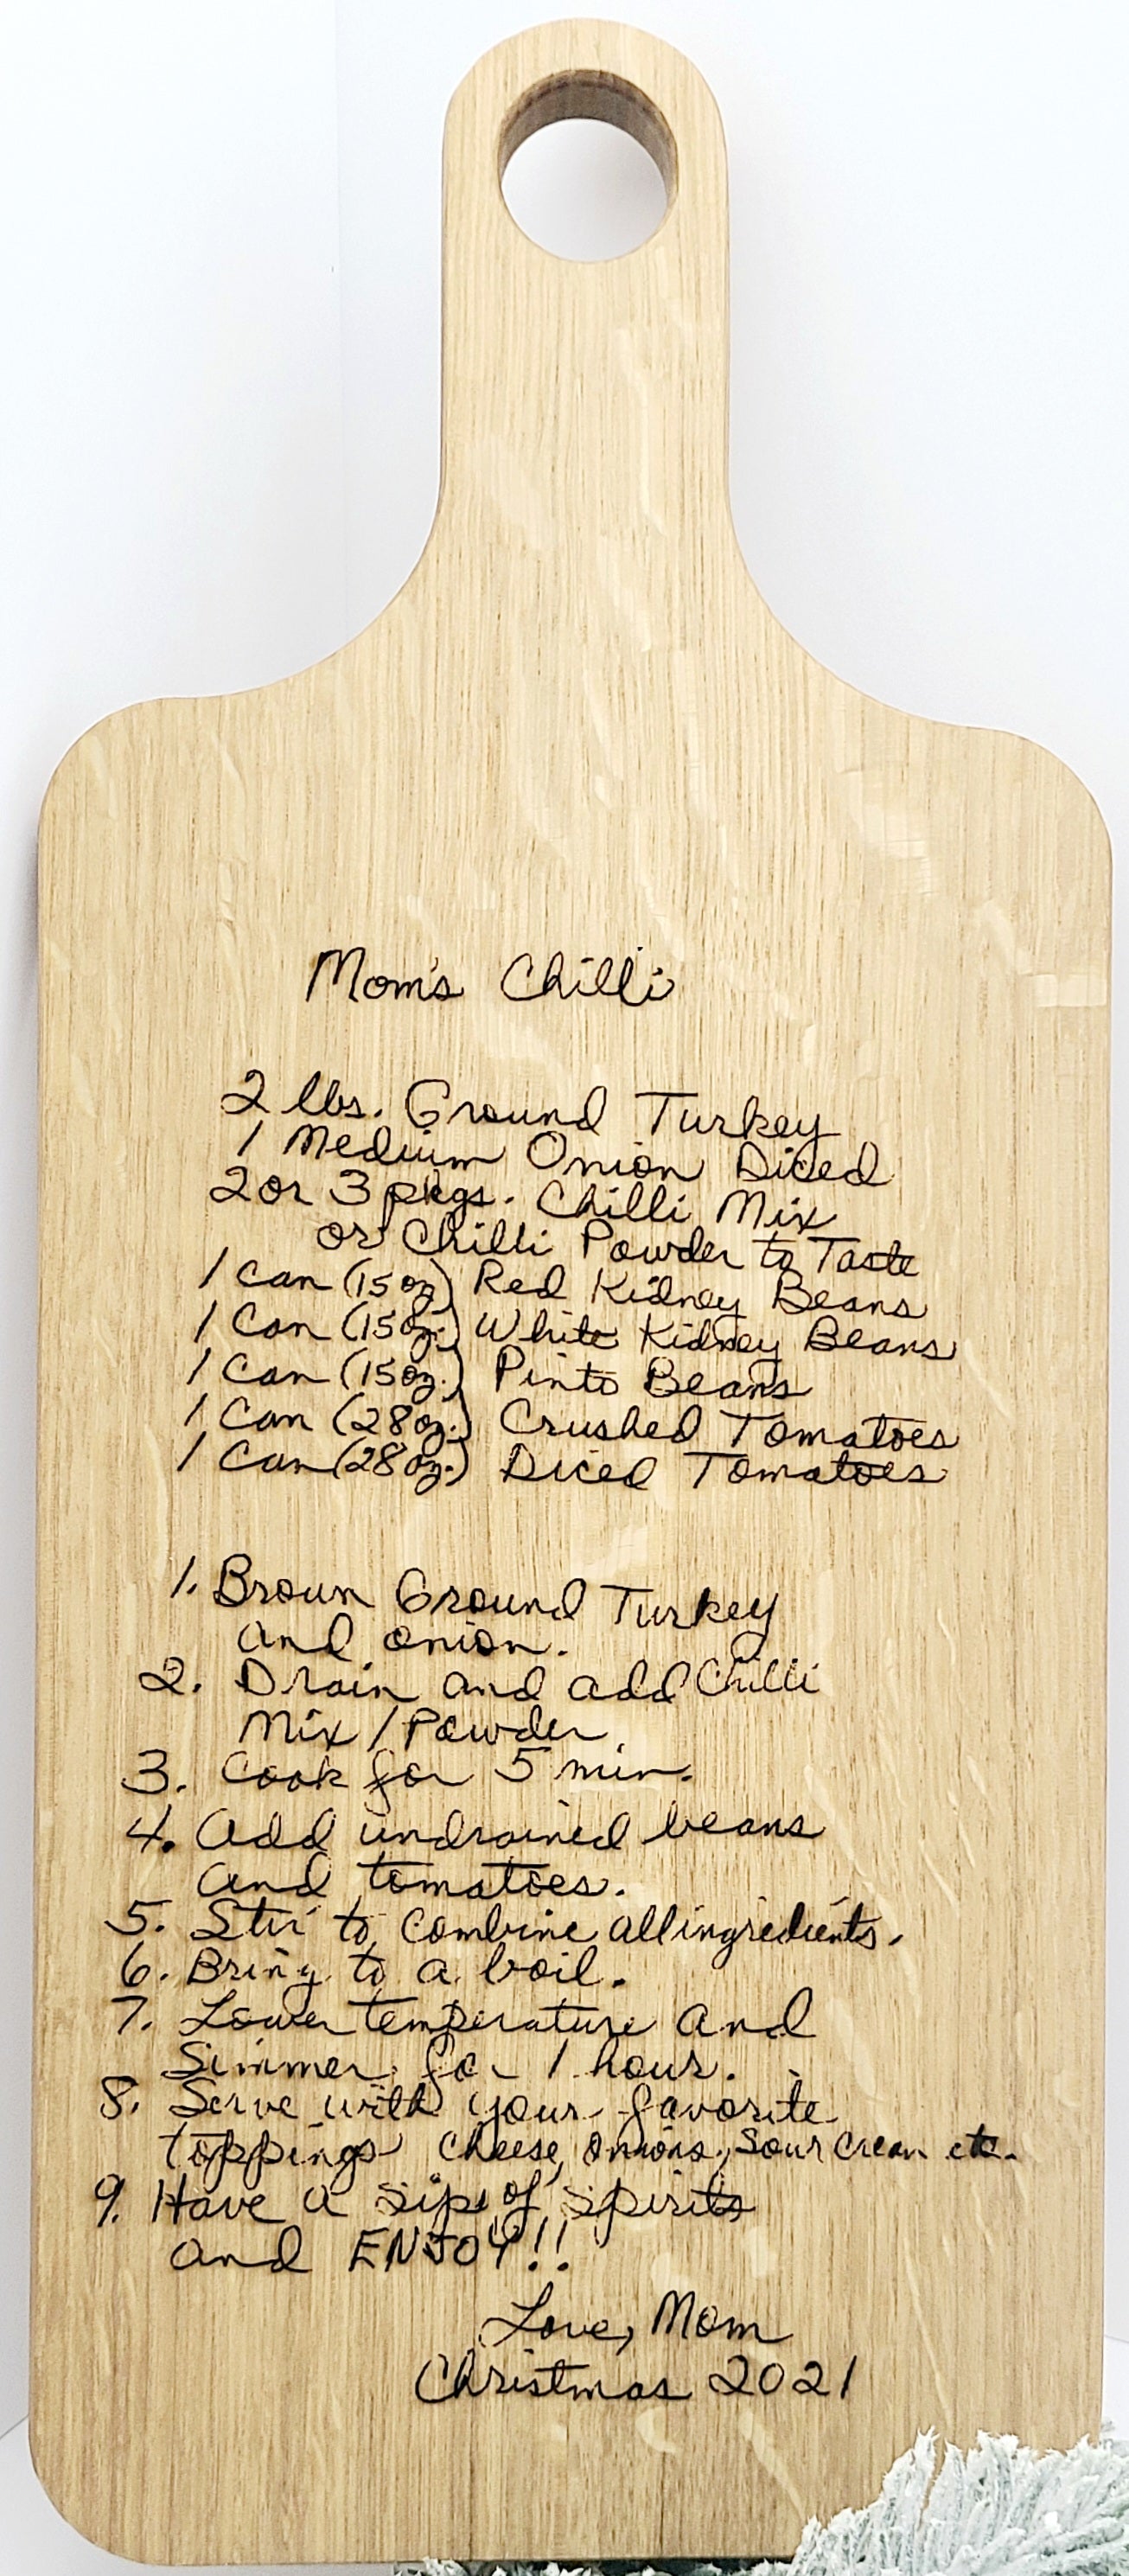 Mom's Chilli
2 lbs. Ground Turkey
1 Medium Onion Diced
2 or 3 pkgs. Chilli Mix
or Chilli Powder to Taste
1 Can (15oz) Red Kidney Beans
1 Can (15oz.) White Kidney Beans
1 Can (15oz.) Pinto Beans
1 Can (28oz.) Crushed Tomatoes
1 Can (28oz.) Diced Tomatoes
1. Brown Ground Turkey
and onion.
2. Drain and add Chilli
Mix / Powder
3. Cook for 5 min.
4. Add undrained beans
and tomatoes.
5. Stir to Combine all ingredients.
6. Bring to a boil.
7. Lower temperature and
Simmer for 1 hour.
8. Serve with your favorite
toppings Cheese, Onions, Sour Cream etc.
9. Have a sips of spirits
and ENJOY!!
Love, Mom
Christmas 2021